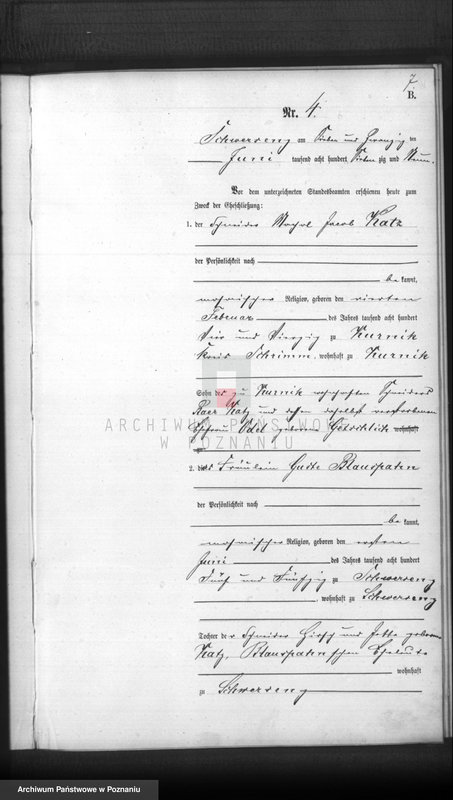 7
B.
Nr. 4.
Schwersenz am Sieben und Zwanzig ten
Juni tausend acht hundert Sieben zig und Neun.
Vor dem unterzeichneten Standesbeamten erschienen heute zum
Zweck der Eheschließung:
1. der Schneider Jacob Katz
der Persönlichkeit nach
be kannt,
mosaischer Religion, geboren den vierten
Februar des Jahres tausend acht hundert
Vier und Vierzig zu Kurnik
Kreis Schrimm, wohnhaft zu Kurnik
Sohn des zu Kurnik wohnhaften Schneiders
Katz und dessen daselbst verstorbenen
Ehefrau geborene wohnhaft
ARCHIWUM PAŃSTWOWE
W POZNANIU
2. die Fräulein Guste Blauspahn
der Persönlichkeit nach
be kannt,
mosaischer Religion, geboren den ersten
Juni des Jahres tausend acht hundert
Fünf und Fünfzig zu Schwersenz
, wohnhaft zu Schwersenz
Tochter der Schneider Hirsch und Jette geborene
Katz, Blauspahn'schen Eheleute
wohnhaft
zu Schwersenz
Archiwum Państwowe w Poznaniu